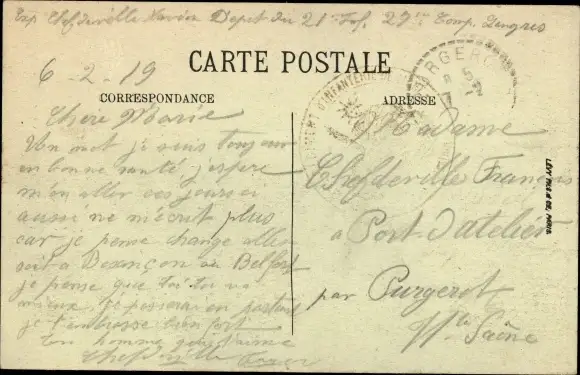 Exp Chefdeville Xavier Depot du 21e Inf. 27me Comp. Langres
CARTE POSTALE
6-2-19
CORRESPONDANCE
ADRESSE
Chère Marie
Un mot je suis toujour
en bonne santé j'espere
m'en aller ces jours ci
aussi ne m'ecrit plus
car je pense change aller
soit a Besançon ou Belfort
je pense que toi tu va
mieux, je passerai en partant
je t'embrasse bien fort
Ton homme qui t'aime
Chefdeville Xavier
Madame
Chefdeville François
a Port d'atelier
par Purgerot
Hte Saône
D'INFANTERIE
PURGEROT
LÉVY FILS & CIE, PARIS